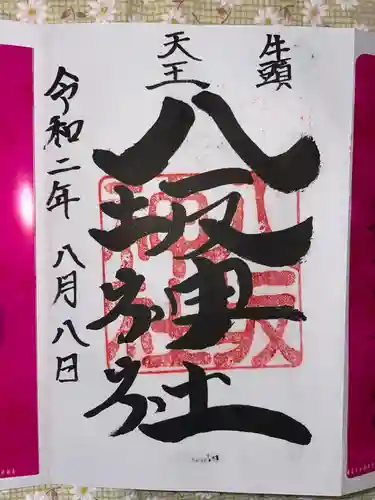 牛頭
天王
八坂神社
令和二年 八月八日